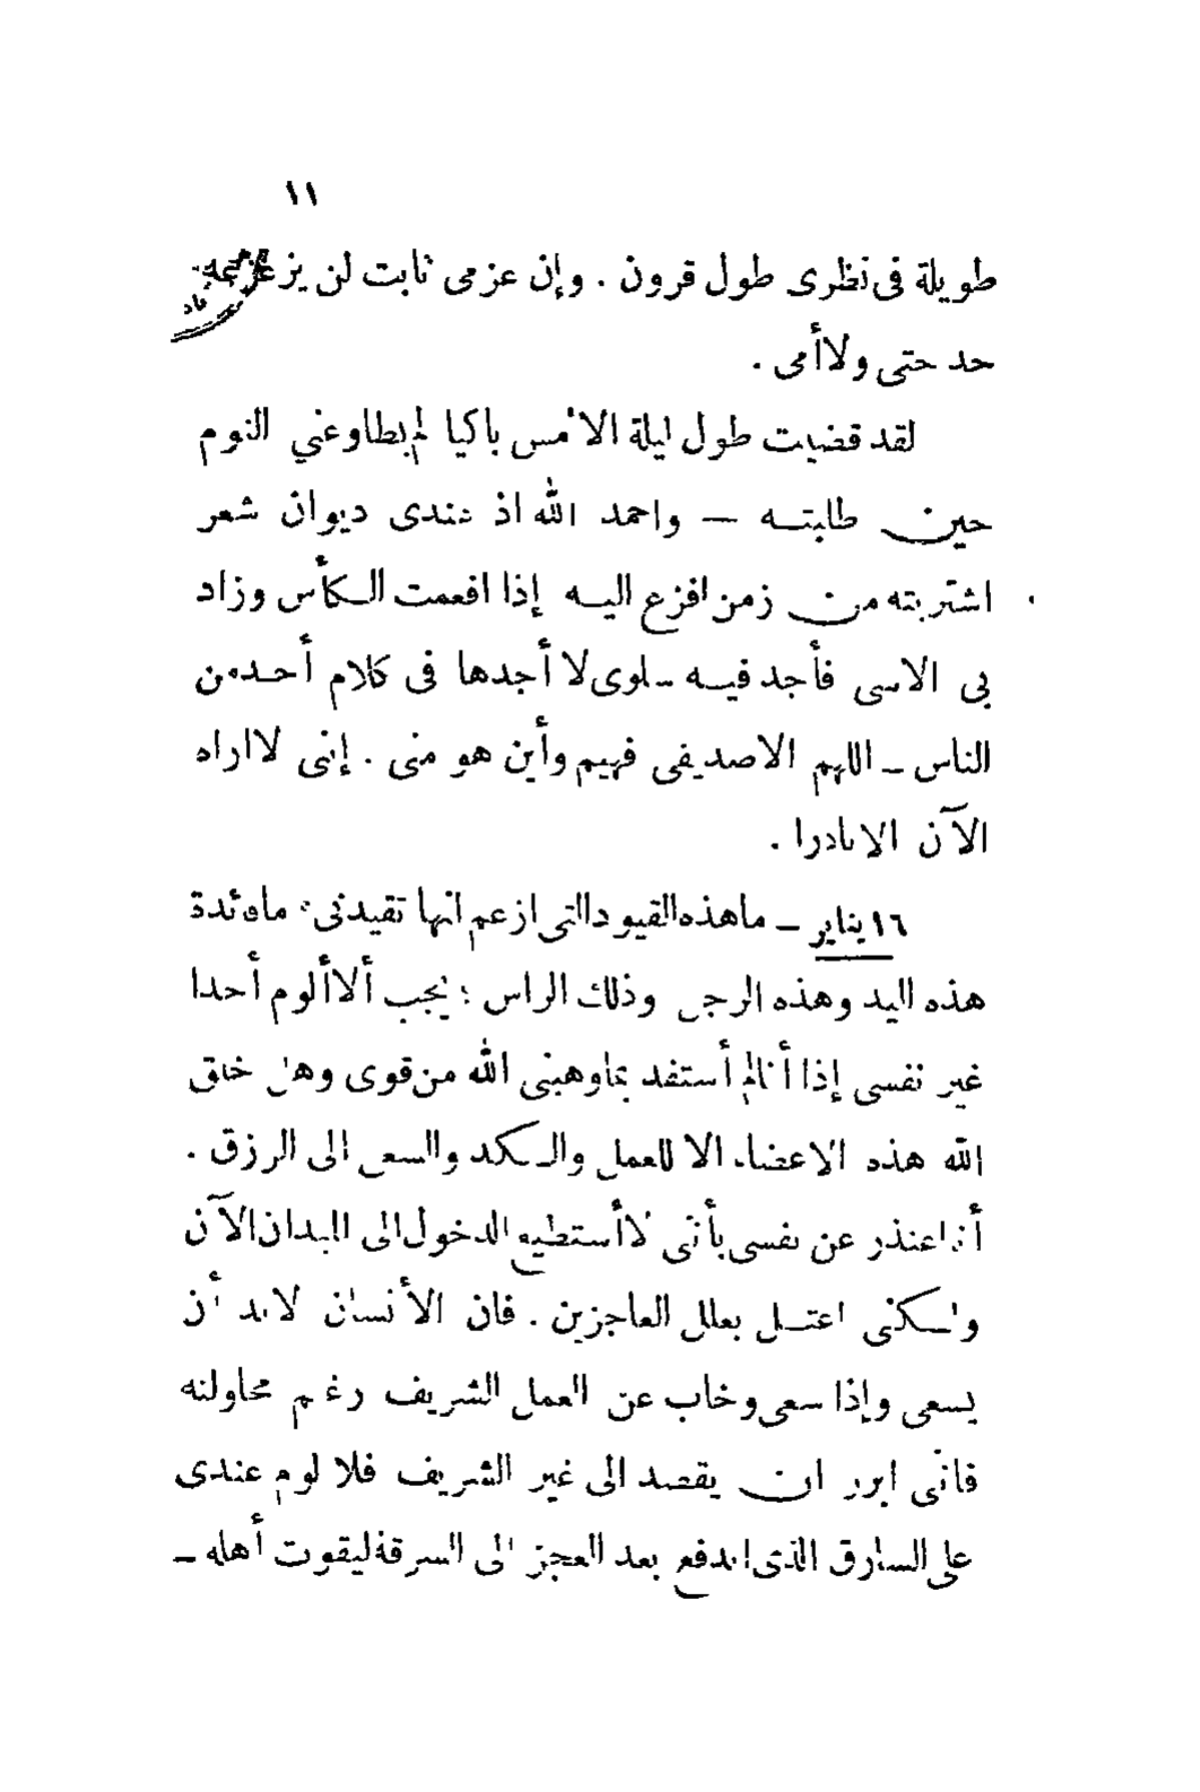 ١١
طويلة فى نظرى طول قرون . وإن عزمى ثابت لن يزعزعه
حد حتى ولا أمى .
لقد قضيت طول ليلة الامس باكيا لم يطاوعني النوم
حين طلبته — واحمد الله اذ عندى ديوان شعر
اشتريته من زمن افزع اليه إذا افعمت الكأس وزاد
بى الاسى فأجد فيه سلوى لا أجدها فى كلام أحد من
الناس – اللهم الا صديقى فهيم وأين هو منى . إنى لا اراه
الآن الا نادرا .
١٦ يناير – ما هذه القيود التى ازعم انها تقيدنى ؟ ما فائدة
هذه اليد وهذه الرجل وذلك الراس ؛ يجب ألا ألوم أحدا
غير نفسى إذا أنا لم أستفد بما وهبنى الله من قوى وهل خلق
الله هذه الاعضاء الا للعمل والكد والسعى الى الرزق .
أنا اعتذر عن نفسى بأنى لا أستطيع الدخول الى الميدان الآن
ولكنى اعتل بعلل العاجزين . فان الأنسان لا بد أن
يسعى وإذا سعى وخاب عن العمل الشريف رغم محاولته
فانى ابرر ان يقصد الى غير الشريف فلا لوم عندى
على السارق الذى اندفع بعد العجز الى السرقة ليقوت أهله –